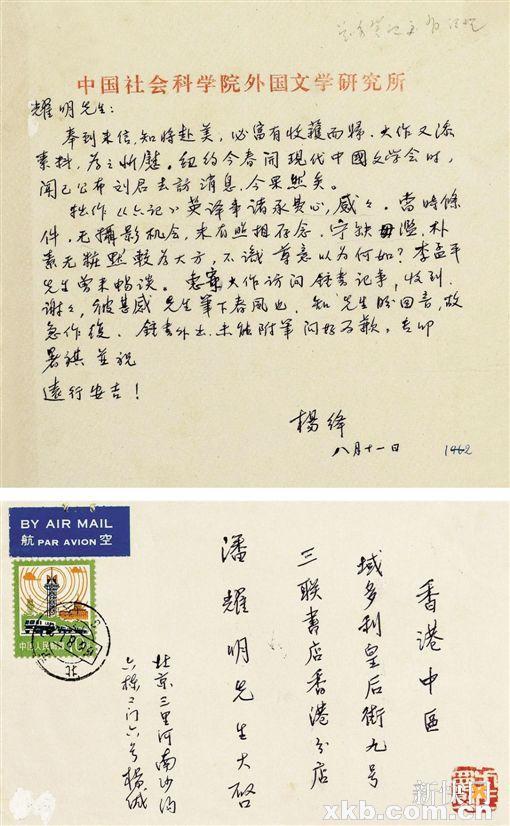 中国社会科学院外国文学研究所
耀明先生:
奉到来信,知将赴美,必富有收穫而歸.大作又添
素料,为之忻慰.纽约今春開现代中國文学会时,
闻已公布刘君去訪消息,今果然矣.
拙作《六记》英译事诸承费心,感々.當時條
件,无攝影机会,未有照相存念.宁缺毋濫,朴
素无粧點較为大方,不識尊意以为何如?李孟平
先生曾来暢谈.惠寄大作访问锺書记事,收到.
谢々,彼甚感先生筆下春風也.知先生盼回音,故
急作復.锺書外出未能附筆问好为歉,专叩
暑祺並祝
遠行安吉!
楊绛
八月十一日
1462
BY AIR MAIL
航 PAR AVION 空
中国人民邮政
北京
香港中區
域多利皇后街九号
三联書店香港分店
潘耀明先生大啓
北京三里河南沙沟
六栋二门六号楊缄
新快网
xkb.com.cn